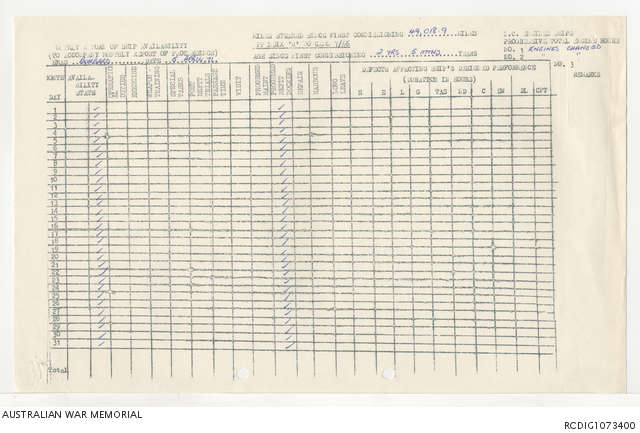 MILES STEAMED SINCE FIRST COMMISSIONING 49,018.9 MILES
I.C. ENGINED SHIPS
PROGRESSIVE TOTAL ENGINE HOURS
OF SHIP AVAILABILITY
(TO ACCOMPANY MONTHLY REPORT OF PROCEEDINGS)
AGE SINCE FIRST COMMISSIONING 2 YRS 5 MTHS YEARS
NO. 1 ENGINES CHANGED
NO. 2 "
NO. 3
DEFECTS AFFECTING SHIP'S DESIGNED PERFORMANCE
(DURATION IN HOURS)
REMARKS
DAY
AVAILABILITY
STATE
OPERATIONAL
DUTIES
EXERCISE
WEAPON
TRAINING
SPECIAL
TASKS
POST
REFIT
TRIALS
PASSAGE
TIME
VISIT
REFIT
DOCKING
REPAIR
HARBOUR
LONG
LEAVE
E L G TAS ND C IN BL CPT
1
2
3
4
5
6
7
8
9
10
11
12
13
14
15
16
17
18
19
20
21
22
23
24
25
26
27
28
29
30
31
Total
AUSTRALIAN WAR MEMORIAL
RCDIG1073400